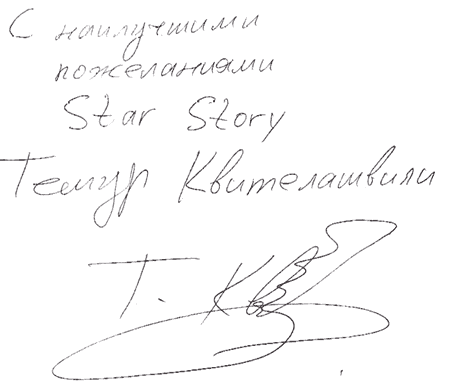 С наилучшими
пожеланиями
Star Story
Темур Квителашвили
Т. Кв